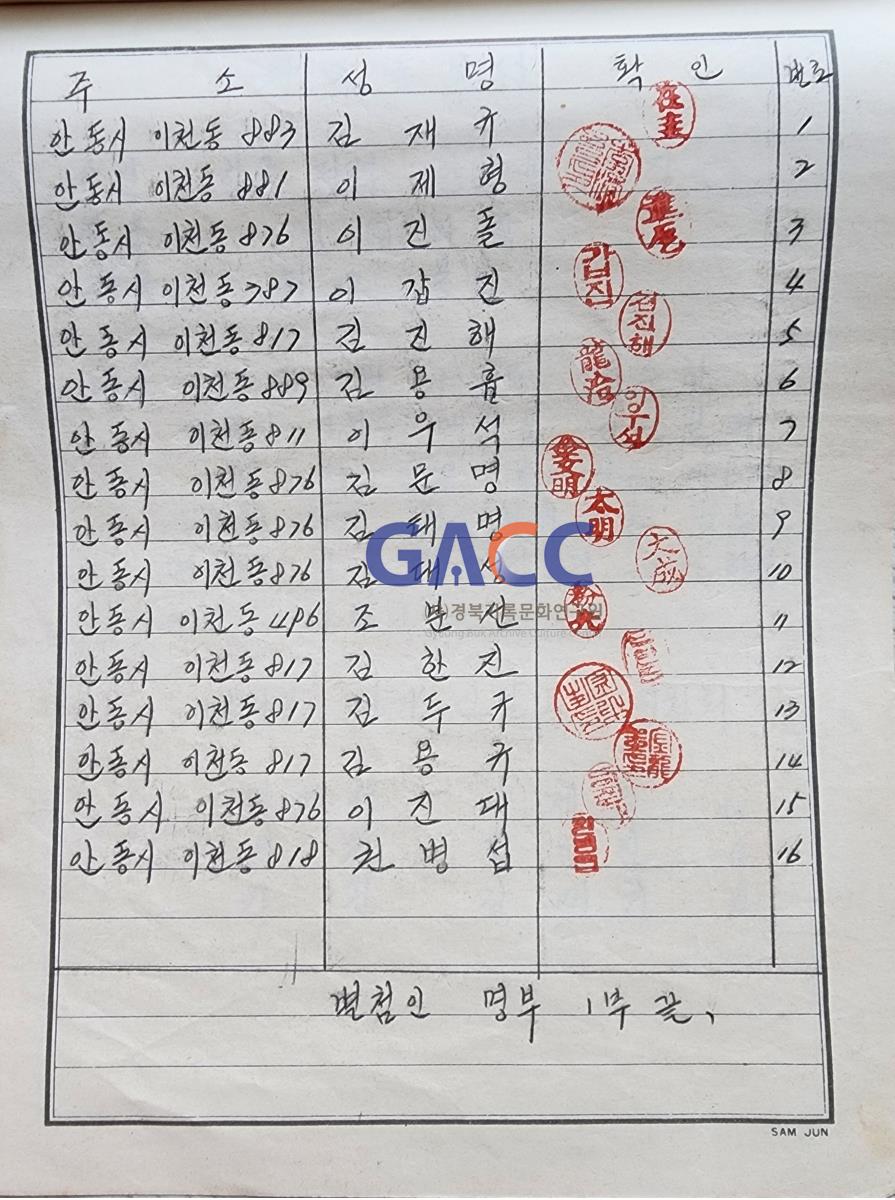 주 소 성 명 확 인 번호
안동시 이천동 883 김 재 규 1
안동시 이천동 881 이 제 형 2
안동시 이천동 876 이 진 풀 3
안동시 이천동 787 이 갑 진 갑진 4
안동시 이천동 817 김 진 해 김진해 5
안동시 이천동 889 김 용 흡 6
안동시 이천동 811 이 우 석 7
안동시 이천동 876 김 문 명 8
안동시 이천동 876 김 태 명 太明 9
안동시 이천동 876 김 대 10
안동시 이천동 496 조 분 선 11
안동시 이천동 817 김 한 진 12
안동시 이천동 817 김 두 규 13
안동시 이천동 817 김 용 규 14
안동시 이천동 876 이 진 대 15
안동시 이천동 818 권 병 섭 16
별첨인 명부 1부 끝,
GACC
경북기록문화연구원
SAM JUN